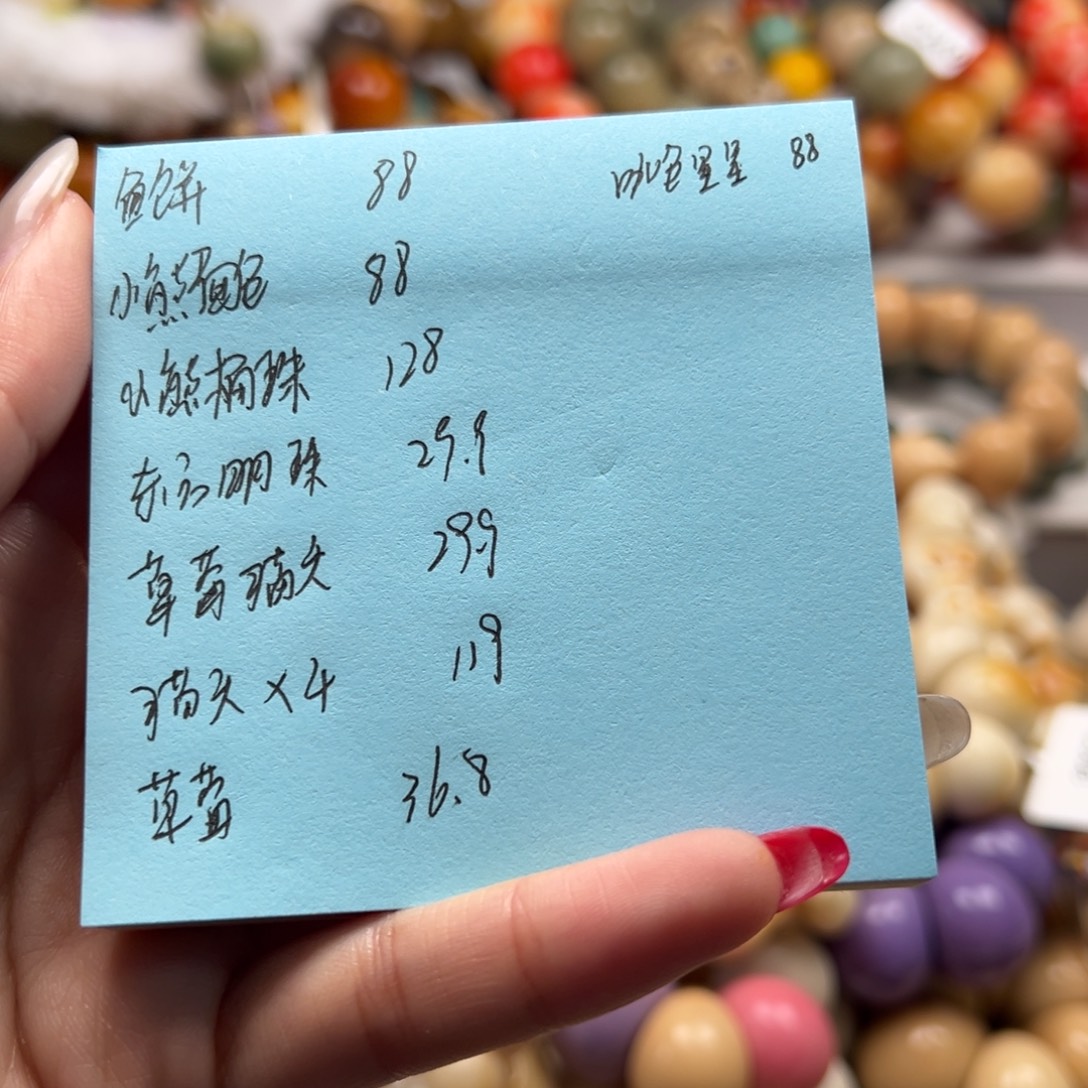 鱼饼 88
咖色星星 88
小熊面包 88
小熊桶珠 128
东方明珠 29.9
草莓猫头 29.9
猫头×4 119
草莓 36.8